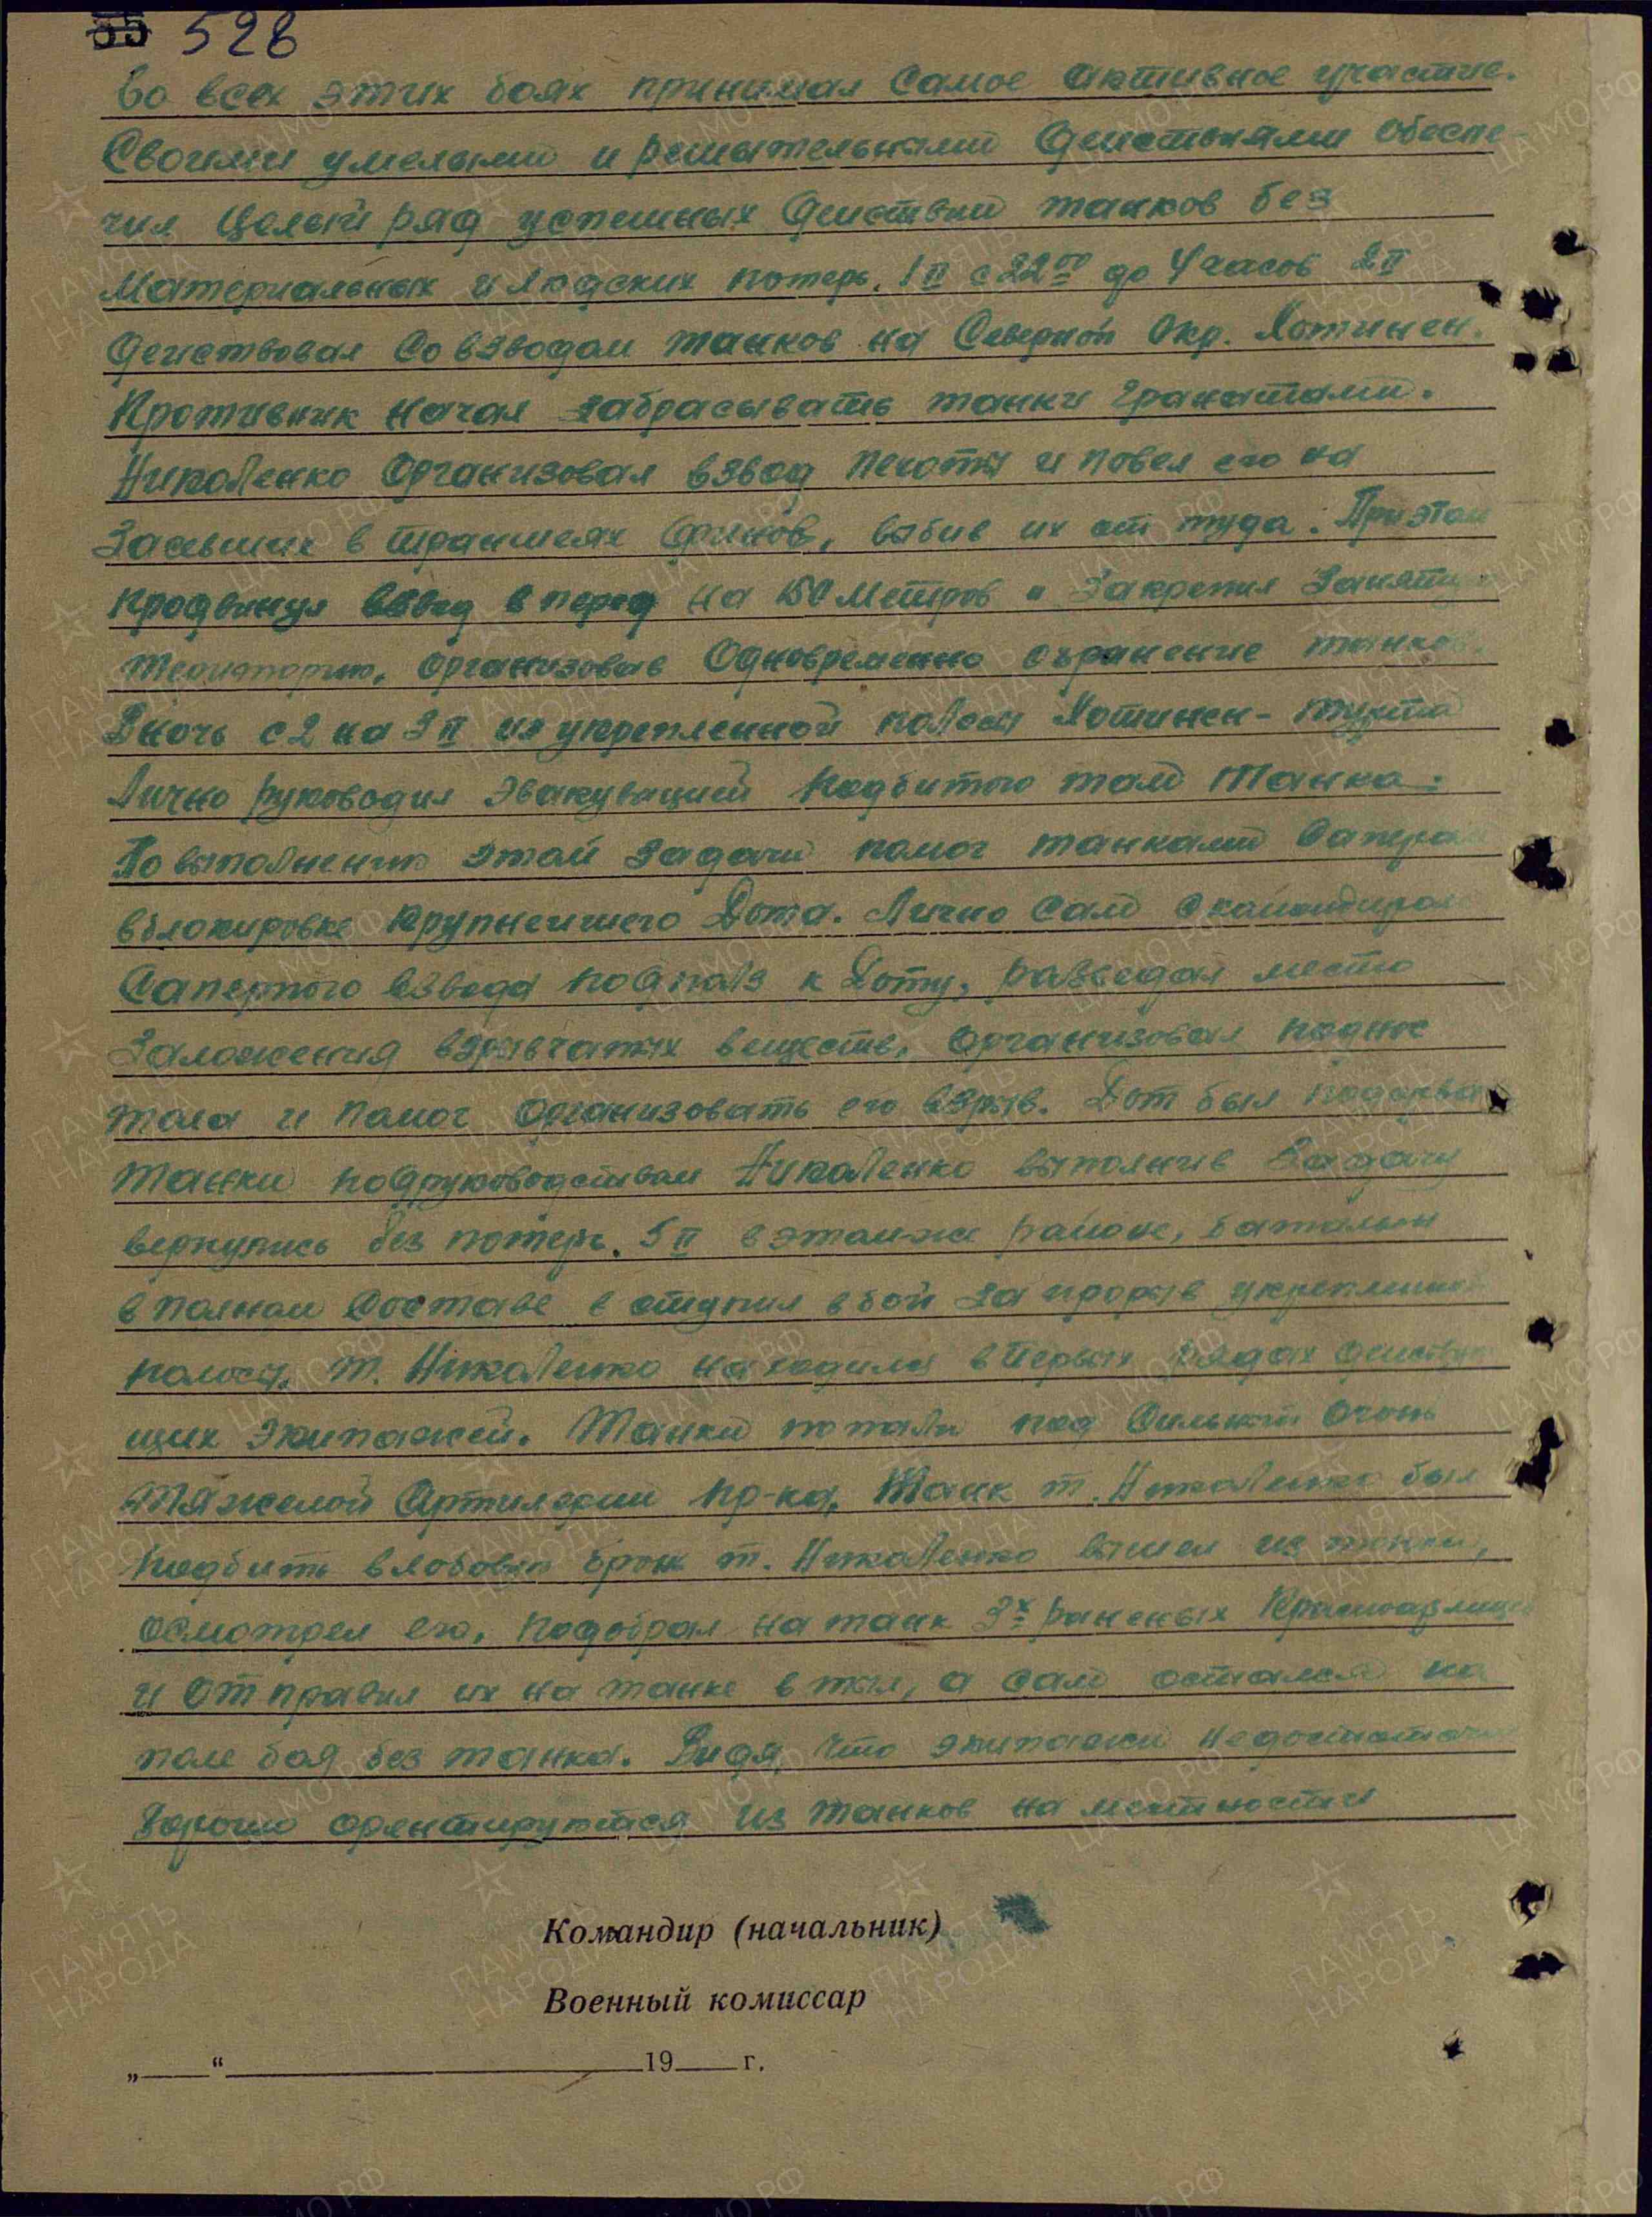 528
Во всех этих боях принимал Самое активное участие.
Своими умелыми и решительными Действиями обеспе-
чил Целый ряд успешных Действий танков без
Материальных и людских потерь. 1 II с 22 00 до 4 часов 2 II
Действовал Со взводом танков на Северной Окр. Хотинен.
Противник начал забрасывать танки гранатами.
Николенко Организовал взвод пехоты и повел его на
Засевших в траншеях Финов, выбив их от туда. При этом
продвинул взвод в перед на 150 метров и Закрепил Заняту
теоиторию, Организовав Одновременно охранение танков.
Вночь с 2 на 3 II из укрепленной полосы Хотинен-Турта
Лично руководил эвакуацией Подбитого там Танка.
По выполнению этой задачи помог танками Сапера
вблокировке Крупнейшего Дота. Лично Сам С командиром
Саперного взвода подполз к Доту, разведал место
Заложения взрывчатых веществ, Организовал поднос
тола и помог Организовать его взрыв. Дот был подорва
Танки подруководством Николенко выполнив Задачу
вернулись без потерь. 5 II вэтомже районе, батальон
в полном Составе вступил в бой за прорыв укреплен
полосы. т. Николенко находился впервых рядах действу
щих экипажей. Танки попали под Сильный Огонь
тяжелой Артилерии пр-ка. Танк т. Николенко был
Подбить влобовую броню т. Николенко вышел из танка,
осмотрел его, Подобрал на танк 3х раненых Красноармейце
и отправил их на танке в тыл, а сам остался на
поле боя без танка. Видя, что экипажи недостаточ
Хорошо ориентируются из танков на местности
Командир (начальник)
Военный комиссар
„___“ ______________ 19___ г.